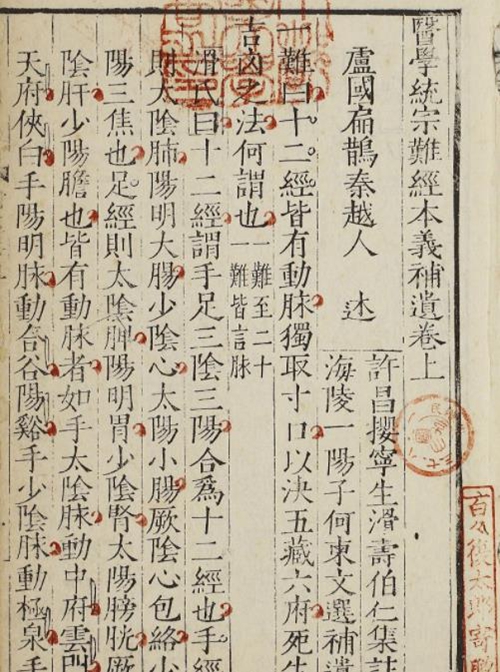 醫學統宗難經本義補遺卷上
盧國扁鵲秦越人 述
許昌攖寧生滑壽伯仁集註
海陵一陽子何柬文選補遺
一難曰十二經皆有動脉獨取寸口以決五藏六府死生
吉凶之法何謂也一難至二十難皆言脉
滑氏曰十二經謂手足三陰三陽合爲十二經也手經
則太陰肺陽明大腸少陰心太陽小腸厥陰心包絡少
陽三焦也足經則太陰脾陽明胃少陰腎太陽膀胱厥
陰肝少陽膽也皆有動脉者如手太陰脉動中府雲門
天府俠白手陽明脉動合谷陽谿手少陰脉動極泉手